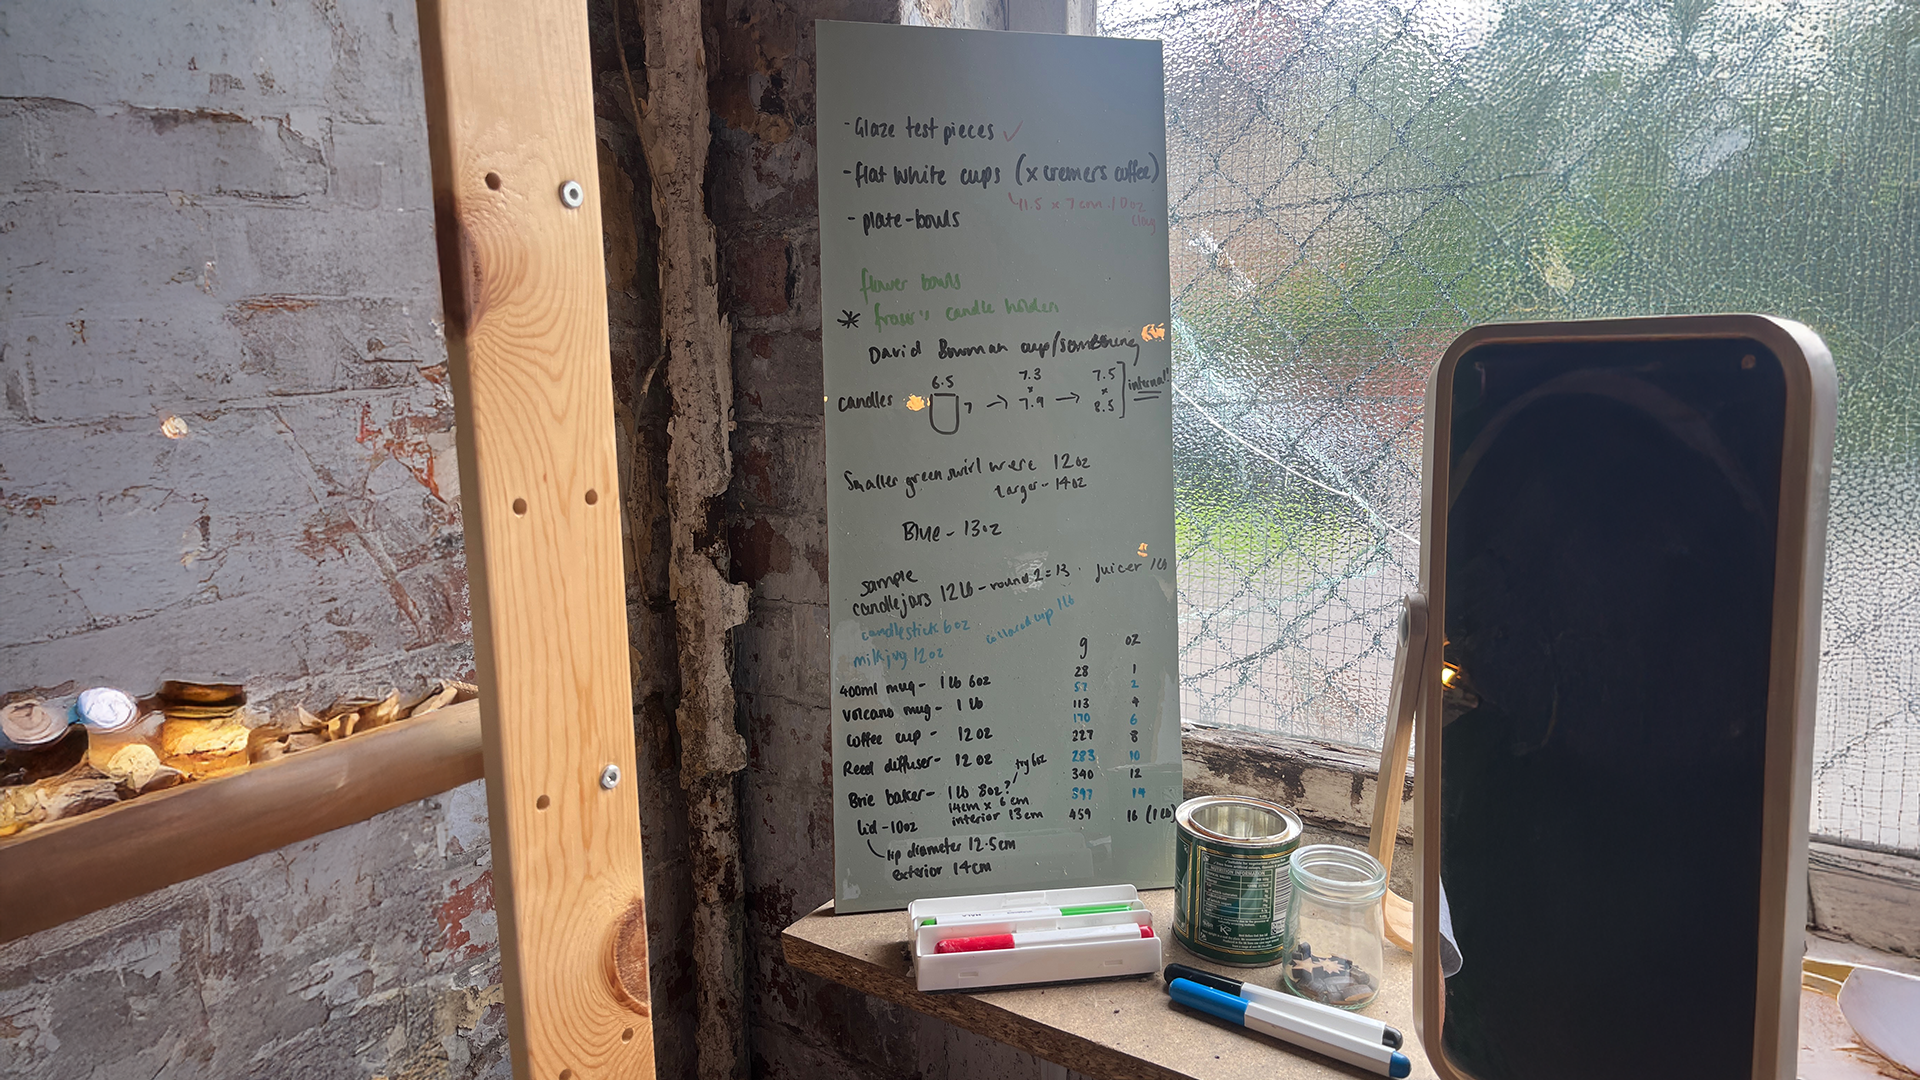 - Glaze test pieces ✓
- flat white cups (x cremers coffee)
11.5 x 7 cm 10oz
clay
- plate-bowls
flower bowls
* fraser's candle holder
David Bowman cup/something
candles 6.5 7 → 7.3 x 7.9 → 7.5 x 8.5 ] internal!
Smaller green swirl were 12oz
Larger - 14oz
Blue - 13oz
sample
candle jars 12 lb - round 2 = 13 . Juicer 1 lb
candlestick 6oz
collared cup 1 lb
milk jug 12oz
g oz
28 1
400ml mug - 1 lb 6oz
57 2
Volcano mug - 1 lb
113 4
170 6
Coffee cup - 12 oz
227 8
Reed diffuser - 12 oz
283 10
try 6oz
340 12
Brie baker - 1 lb 8oz?
397 14
14cm x 6 cm
interior 13cm
459 16 (1 lb)
Lid - 10oz
lip diameter 12.5cm
exterior 14cm
NUTRITION INFORMATION